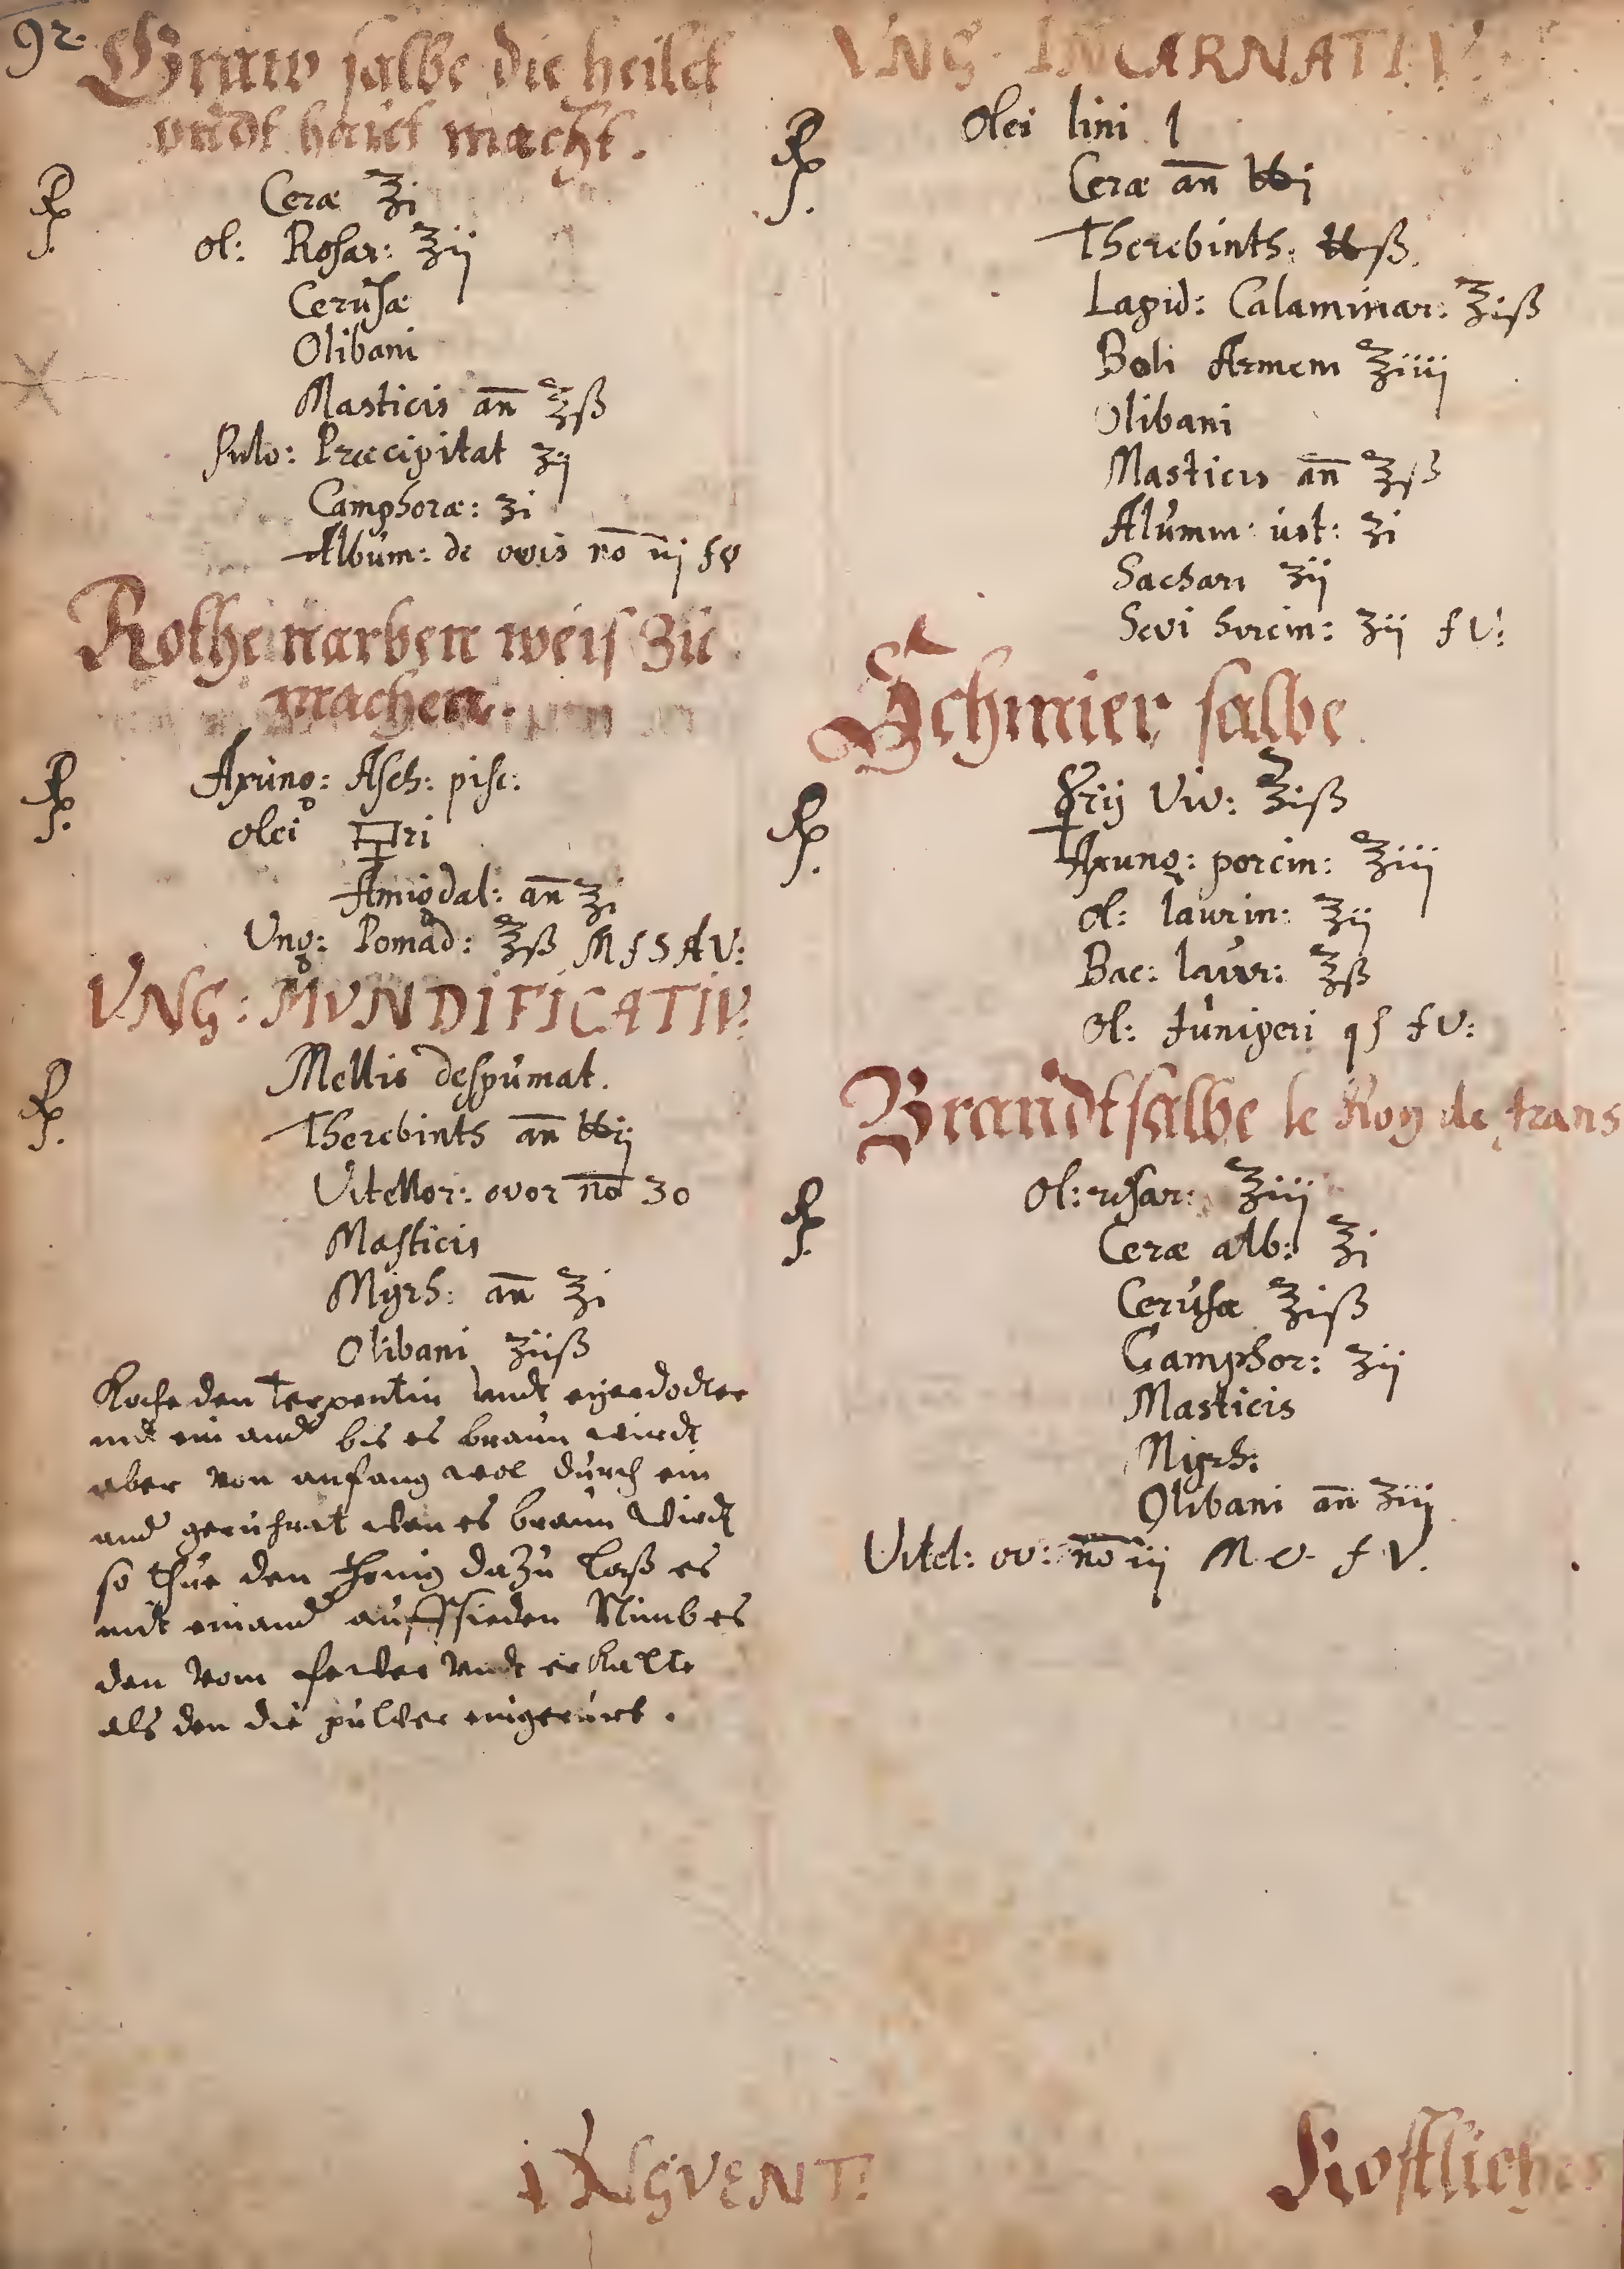 92.
Graw salbe die heilet
undt haut macht.
℞ Ceræ ℥i
ol: Rosar: ℥ij
Cerusæ
Olibani
Masticis an̄ ℥ß
Pulv: Præcipitat ʒij
Camphoræ: ʒi
Album: de ovis no iij f v
Rothe narben weis zu
machen.
℞ Axung: Asch: pisc:
olei ri
Amigdal: an̄ ℥i
Ung: Pomad: ℥ß M f S A V:
VNG: MVNDIFICATIV:
℞ Mellis despumat.
Therebinth an̄ ℔ij
Vitellor: ovor no 30
Masticis
Myrh: an̄ ℥i
Olibani ʒiiß
Koche den Terpentin undt eyerdotter
mit ein and bis es braun wirdt
aber von anfang wol durch ein
and geruhret wen es braun wirdt
so thue den honig dazu laß es
mit einand auffsieden Nimb es
den vom feuer undt erkalte
als den die pulver eingerürt.
VNG. INCARNATIV:
℞ Olei lini
Ceræ an̄ ℔i
Therebinth: ℔ß.
Lapid: Calaminar: ℥iß
Boli Armem ℥iiij
Olibani
Masticis an̄ ℥ß
Alumm: ust: ʒi
Sachari ʒij
Sevi hircin: ʒij f V:
Schmier salbe
℞ ☿rij Viv: ℥iß
Axung: porcin: ℥iij
ol: laurin: ℥ij
Bac: laur: ℥ß
ol: Juniperi qs f V:
Brandtsalbe le Roy de frans
℞ Ol: rosar: ℥iij
Ceræ alb: ℥i
Cerusæ ℥iß
Camphor: ʒij
Masticis
Myrh:
Olibani an̄ ʒiij
Vitel: ov: no iij M. V. f V.
VNGVENT:
Kostliches